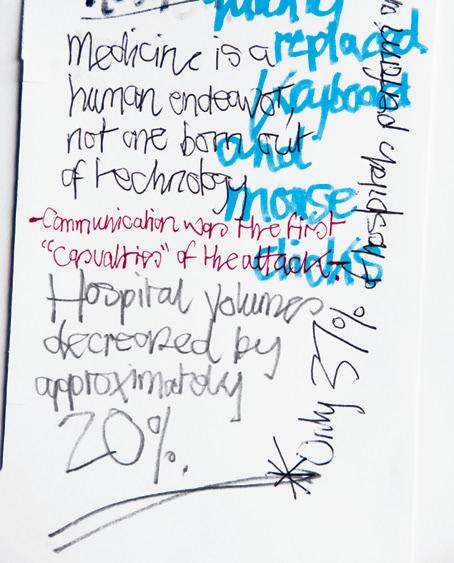 Medicine is a
human endeavor,
not one born out
of technology
-Communication was the first
"casualties" of the attack!
Hospital volumes
decreased by
approximately
20%.
replaced
keyboard
and
mouse
clicks
*Only 37% of hospital